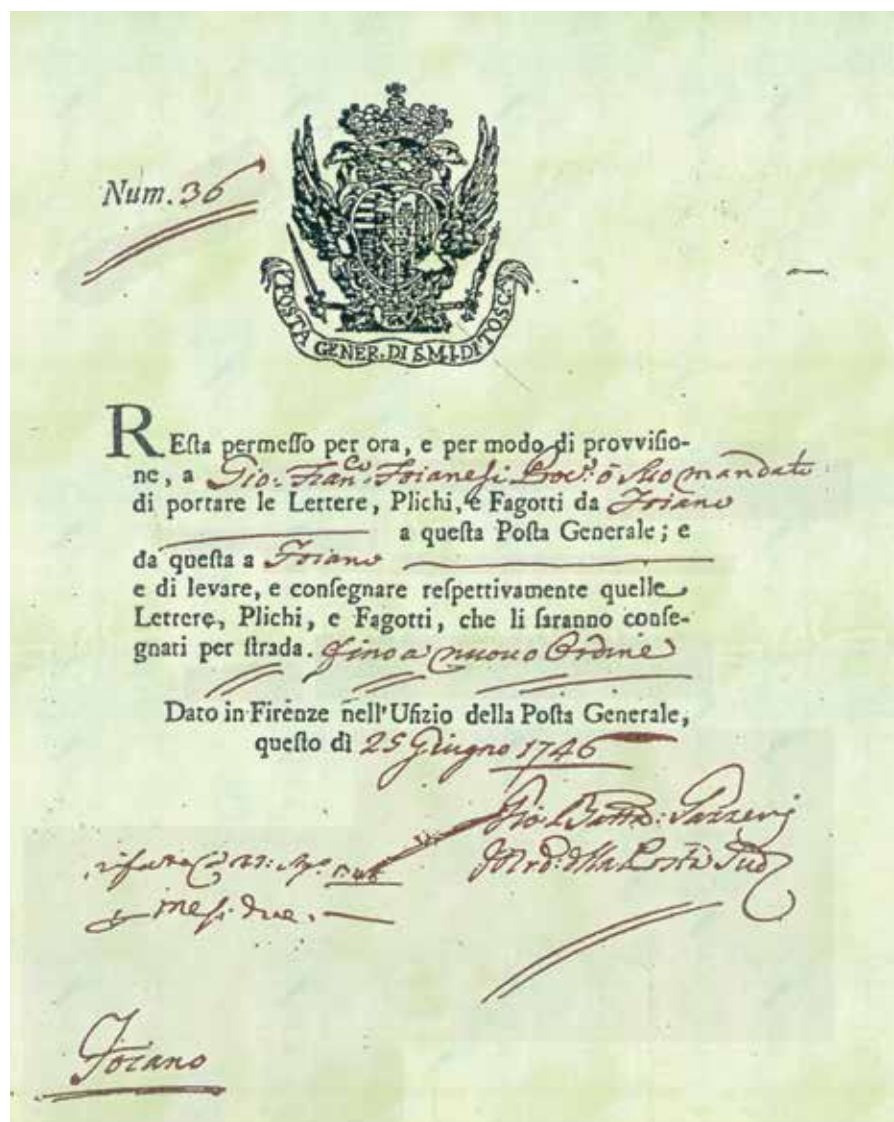 Num. 36
POSTA GENER. DI S.M.I. DI TOSC.
REſta permeſſo per ora, e per modo di provviſio-
ne, a Gio: Fran.co Foianeſi Proc.e ò Suo mandato
di portare le Lettere, Plichi, e Fagotti da Foiano
a queſta Poſta Generale; e
da queſta a Foiano
e di levare, e conſegnare reſpettivamente quelle
Lettere, Plichi, e Fagotti, che li ſaranno conſe-
gnati per ſtrada. fino a nuovo Ordine
Dato in Firenze nell'Ufizio della Poſta Generale,
queſto dì 25 Giugno 1746
Gio: Batta:
della Posta
mesi due.
Foiano